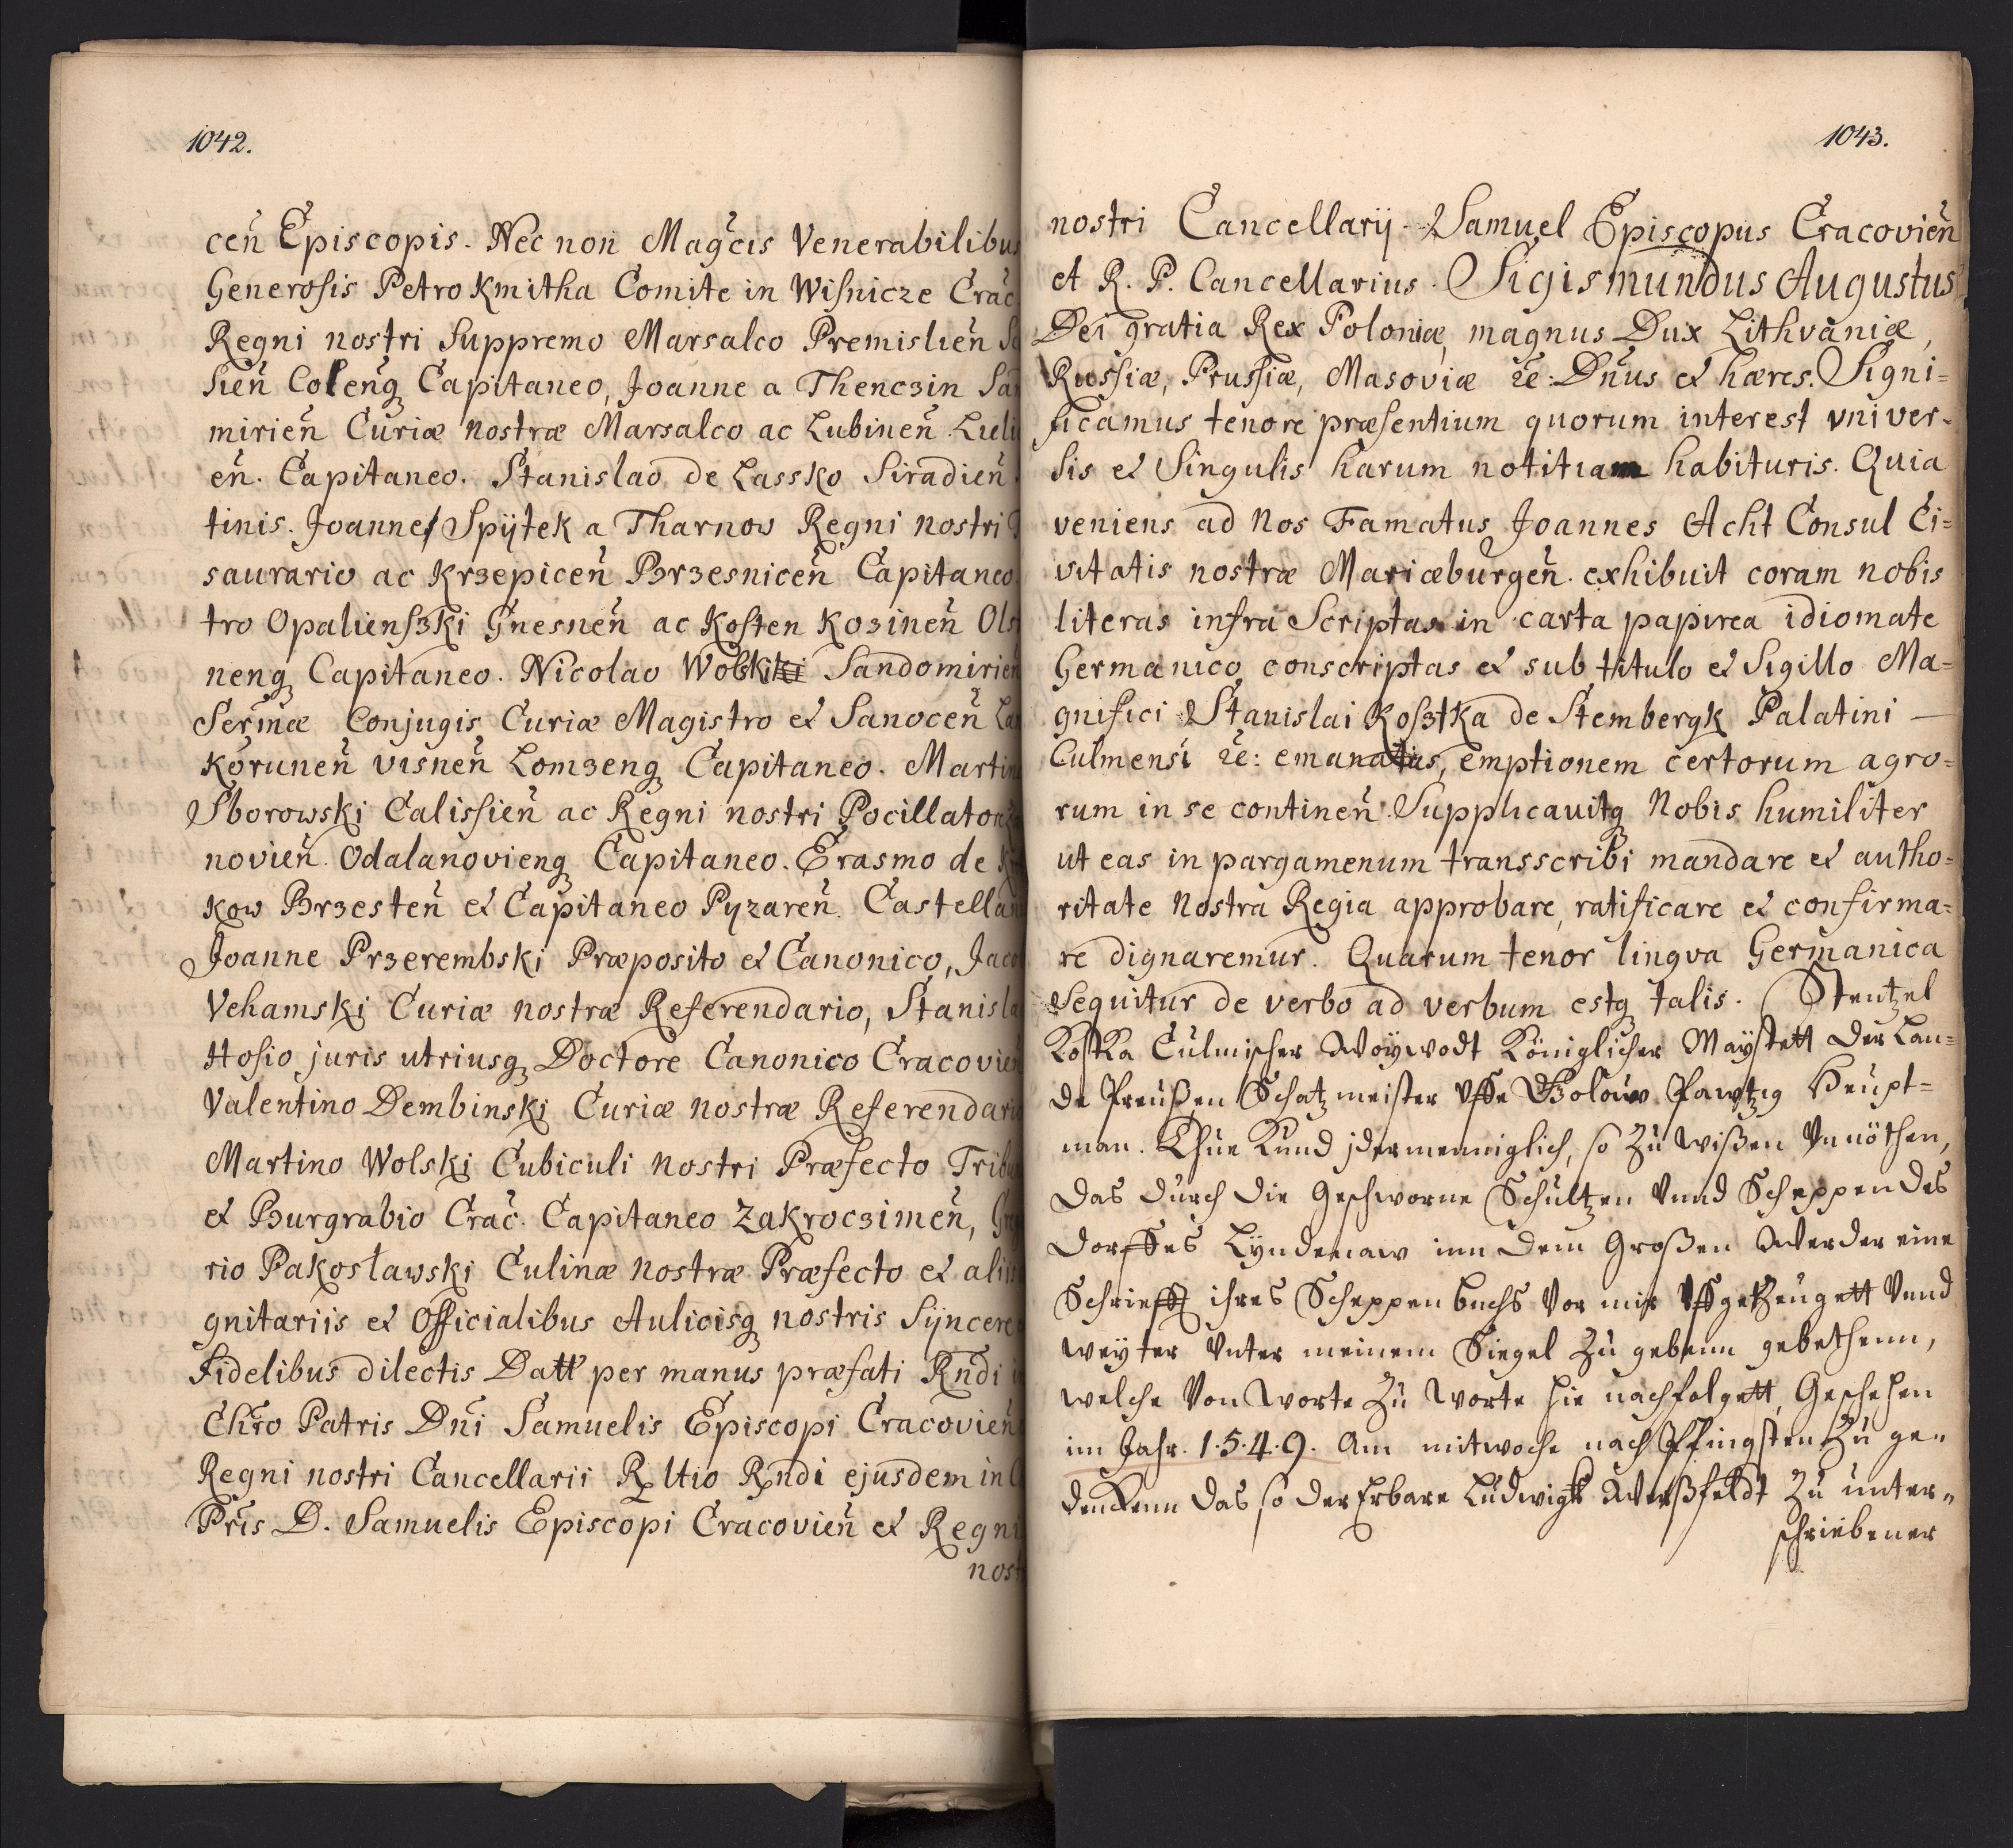 1042.
cen̄ Episcopis. Nec non Magc̄is Venerabilibus
Generosis Petro Kmitha Comite in Wisnicze Crac
Regni nostri Suppremo Marsalco Premislien̄
sien̄ Colenq Capitaneo, Joanne a Thenczin
mirien̄ Curiæ nostræ Marsalco ac Lubinen̄
en̄. Capitaneo. Stanislao de Lassko Siradien̄
tinis. Joanne Spÿtek a Tharnow Regni nostri
saurario ac Krzepicen̄ Brzesnicen̄ Capitaneo
tro Opalienszki Gnesnen̄ ac Kosten Kozinen̄
nenq Capitaneo. Nicolao Wolski Sandomirien
Serm̄æ Conjugis Curiæ Magistro et Sanocen̄
korunen̄ visnen̄ Lomzenq Capitaneo. Martin
Sborowski Calissien̄ ac Regni nostri Pocillator
novien̄. Odalanovienq Capitaneo. Erasmo de
kow Brzesten̄ et Capitaneo Pyzaren̄. Castellan
Joanne Przerembski Præposito et Canonico, Jaco
Vehamski Curiæ nostræ Referendario, Stanisla
Hosio juris utriusq Doctore Canonico Cracovien
Valentino Dembinski Curiæ nostræ Referendario
Martino Wolski Cubiculi nostri Præfecto
et Burgrabio Crac̄. Capitaneo Zakroczimen̄,
rio Pakosławski Culinæ nostræ Præfecto et aliis
gnitariis et Officialibus Aulicisq nostris Sÿncere
fidelibus dilectis Datt per manus præfati Rn̄di
Chr̄o Patris Dn̄i Samuelis Episcopi Cracovien̄
Regni nostri Cancellarii Rltio Rn̄di ejusdem in
Pr̄is D. Samuelis Episcopi Cracovien̄ et Regni
nost
1043.
nostri Cancellarij. Samuel Episcopus Cracovien̄
et R. P. Cancellarius. Sigismundus Augustus
Dei gratia Rex Poloniæ, magnus Dux Lithvaniæ,
Russiæ, Prussiæ, Masoviæ ꝛc: Dn̄us et hæres. Signi=
ficamus tenore præsentium quorum interest vniver=
sis et Singulis harum notitiam habituris. Quia
veniens ad Nos Famatus Joannes Acht Consul Ci=
vitatis nostræ Mariæburgen̄. exhibuit coram nobis
literas infra Scriptas in carta papirea idiomate
Germanico conscriptas et sub titulo et Sigillo Ma=
gnifici Stanislai Kosztka de Stembergk Palatini —
Culmensi ꝛc: emanatas, emptionem certorum agro=
rum in se continen̄. Supplicavitq Nobis humiliter
ut eas in pargamenum transscribi mandare et autho=
ritate Nostra Regia approbare, ratificare et confirma=
re dignaremur. Quarum tenor lingva Germanica
Sequitur de verbo ad verbum estq talis. Stentzel
Kostka Culmischer Woÿwodt Königlicher Maÿstett der Lan=
de Preußen Schatzmeister Vffe Golauw Pawtzig Heupt=
man. Thue kund jdermenniglich, so zu wißen Vnnöthen,
das durch die Geschworne Schultzen Vnnd Scheppen des
Dorffes Lÿndenaw inn dem Großen Werder eine
Schriefft ihres Scheppenbuchs Vor mir Vffgetzeugett Vnnd
weyter Vnter meinem Siegel zu gebenn gebethenn,
welche Von Worte zu Worte hie nachfolgett, Geschehen
im Jahr. 1.5.4.9. Am mitwoche nach Pfingsten zu ge=
denckenn das so der Erbare Ludwigk Werßfeldt zu unter=
schriebener